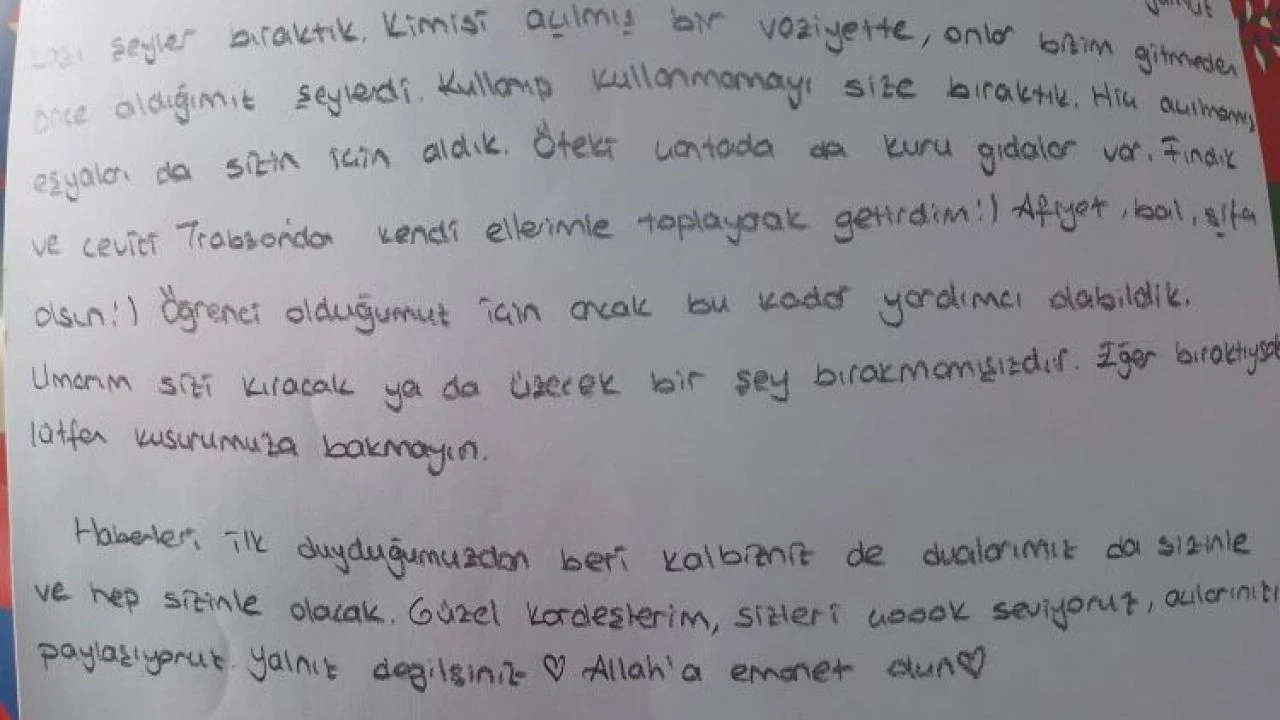 yumut
bazı şeyler bıraktık. Kimisi açılmış bir vaziyette, onlar bizim gitmeden
önce aldığımız şeylerdi. Kullanıp kullanmamayı size bıraktık. Hiç açılmamış
eşyaları da sizin için aldık. Öteki çantada da kuru gıdalar var. Fındık
ve cevizi Trabzondan kendi ellerimle toplayarak getirdim:) Afiyet, bal, şifa
olsun:) Öğrenci olduğumuz için ancak bu kadar yardımcı olabildik.
Umarım sizi kıracak ya da üzecek bir şey bırakmamışızdır. Eğer bıraktıysak
lütfen kusurumuza bakmayın.
Haberleri ilk duyduğumuzdan beri kalbimiz de dualarımız da sizinle
ve hep sizinle olacak. Güzel kardeşlerim, sizleri çoook seviyoruz, acılarınızı
paylaşıyoruz. Yalnız değilsiniz ♡ Allah'a emanet olun♡